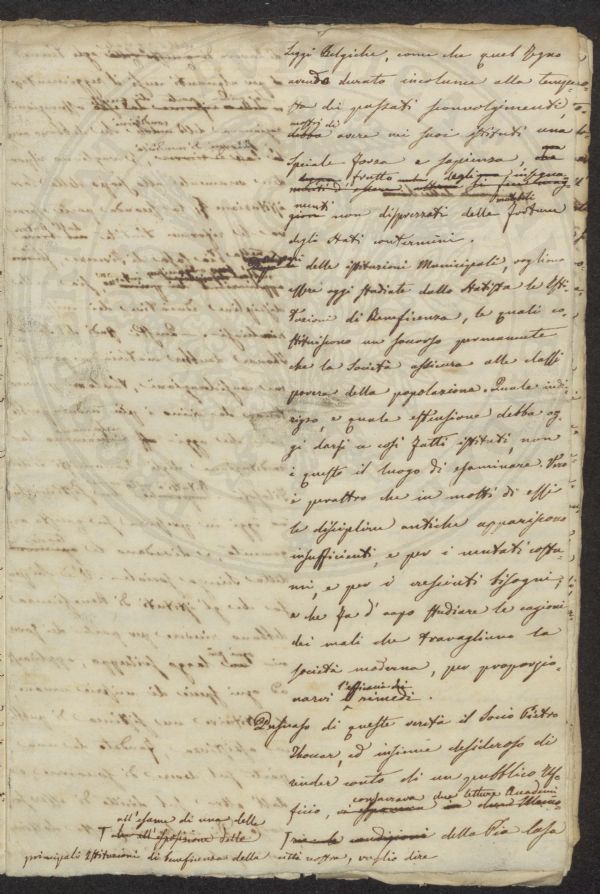 Leggi Belgiche, come che quel Regno
avendo durato incolume alla tempe-
sta di passati sconvolgimenti,
mostri di
debba avere ne' suoi istituti una
speciale forza e sapienza,
frutto degli insegna-
menti
non disprezzati della fortuna
degli Stati contermini.
delle istituzioni Municipali, vogliono
essere oggi studiate dallo Statista le Isti-
tuzioni di Beneficenza, le quali co-
stituiscono un soccorso permanente
che la Società assicura alle classi
povere della popolazione. Quale indi-
rizzo, e quale estensione debba og-
gi darsi a così fatti istituti, non
è questo il luogo di esaminare. Vero
è peraltro che in molti di essi
le discipline antiche appariscono
insufficienti, e per i mutati costu-
mi, e per i cresciuti bisogni;
e che fa d'uopo studiare le cagioni
dei mali che travagliano la
società moderna, per proporzio-
narvi l'efficacia dei rimedi.
Persuaso di queste verità il Socio Pietro
Thouar, ed insieme desideroso di
render conto di un pubblico Uf-
ficio, consacrava due letture Accademi
all'esame di una delle
della Pia Casa
principali Istituzioni di beneficenza della città nostra, voglio dire